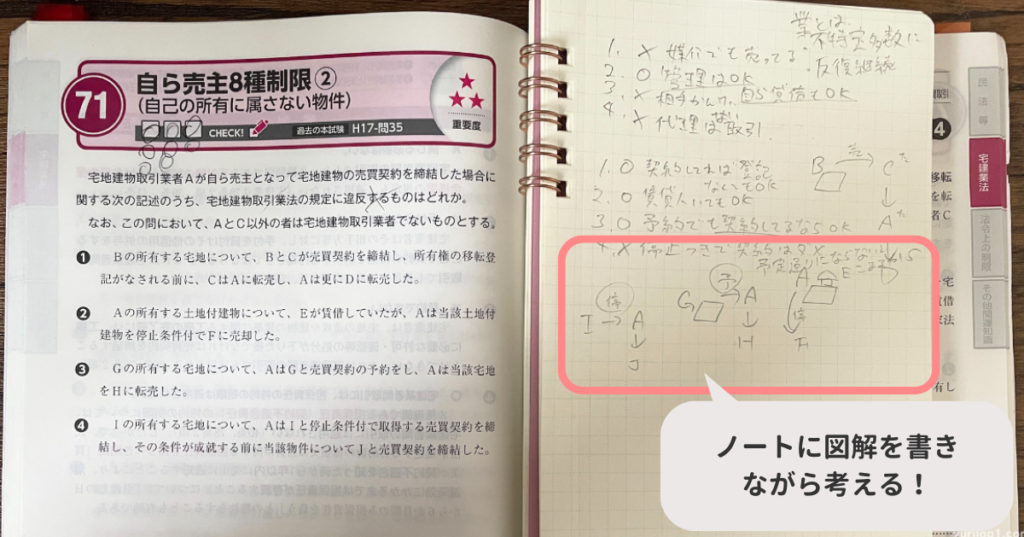 71
自ら売主8種制限②
(自己の所有に属さない物件)
CHECK!
過去の本試験 H17-問35
重要度
宅地建物取引業者Aが自ら売主となって宅地建物の売買契約を締結した場合に
関する次の記述のうち、宅地建物取引業法の規定に違反するものはどれか。
なお、この問において、AとC以外の者は宅地建物取引業者でないものとする。
❶ Bの所有する宅地について、BとCが売買契約を締結し、所有権の移転登
記がなされる前に、CはAに転売し、Aは更にDに転売した。
❷ Aの所有する土地付建物について、Eが賃借していたが、Aは当該土地付
建物を停止条件付でFに売却した。
❸ Gの所有する宅地について、AはGと売買契約の予約をし、Aは当該宅地
をHに転売した。
❹ Iの所有する宅地について、AはIと停止条件付で取得する売買契約を締
結し、その条件が成就する前に当該物件についてJと売買契約を締結した。
業とは
不特定多数に
反復継続
1. ×
2. ○ 管理はOK
3. × 自ら貸借でもOK
4. × 代理は取引.
1. ○ 契約してれば登記
なくてもOK
2. ○ 賃貸人いてもOK
3. ○ 予約でも契約してるならOK
B
C
A
D
G
予
A
H
A
E
停
F
I
停
A
J
ノートに図解を書き
ながら考える！
民法等
宅建業法
法令上の制限
その他関連知識
4